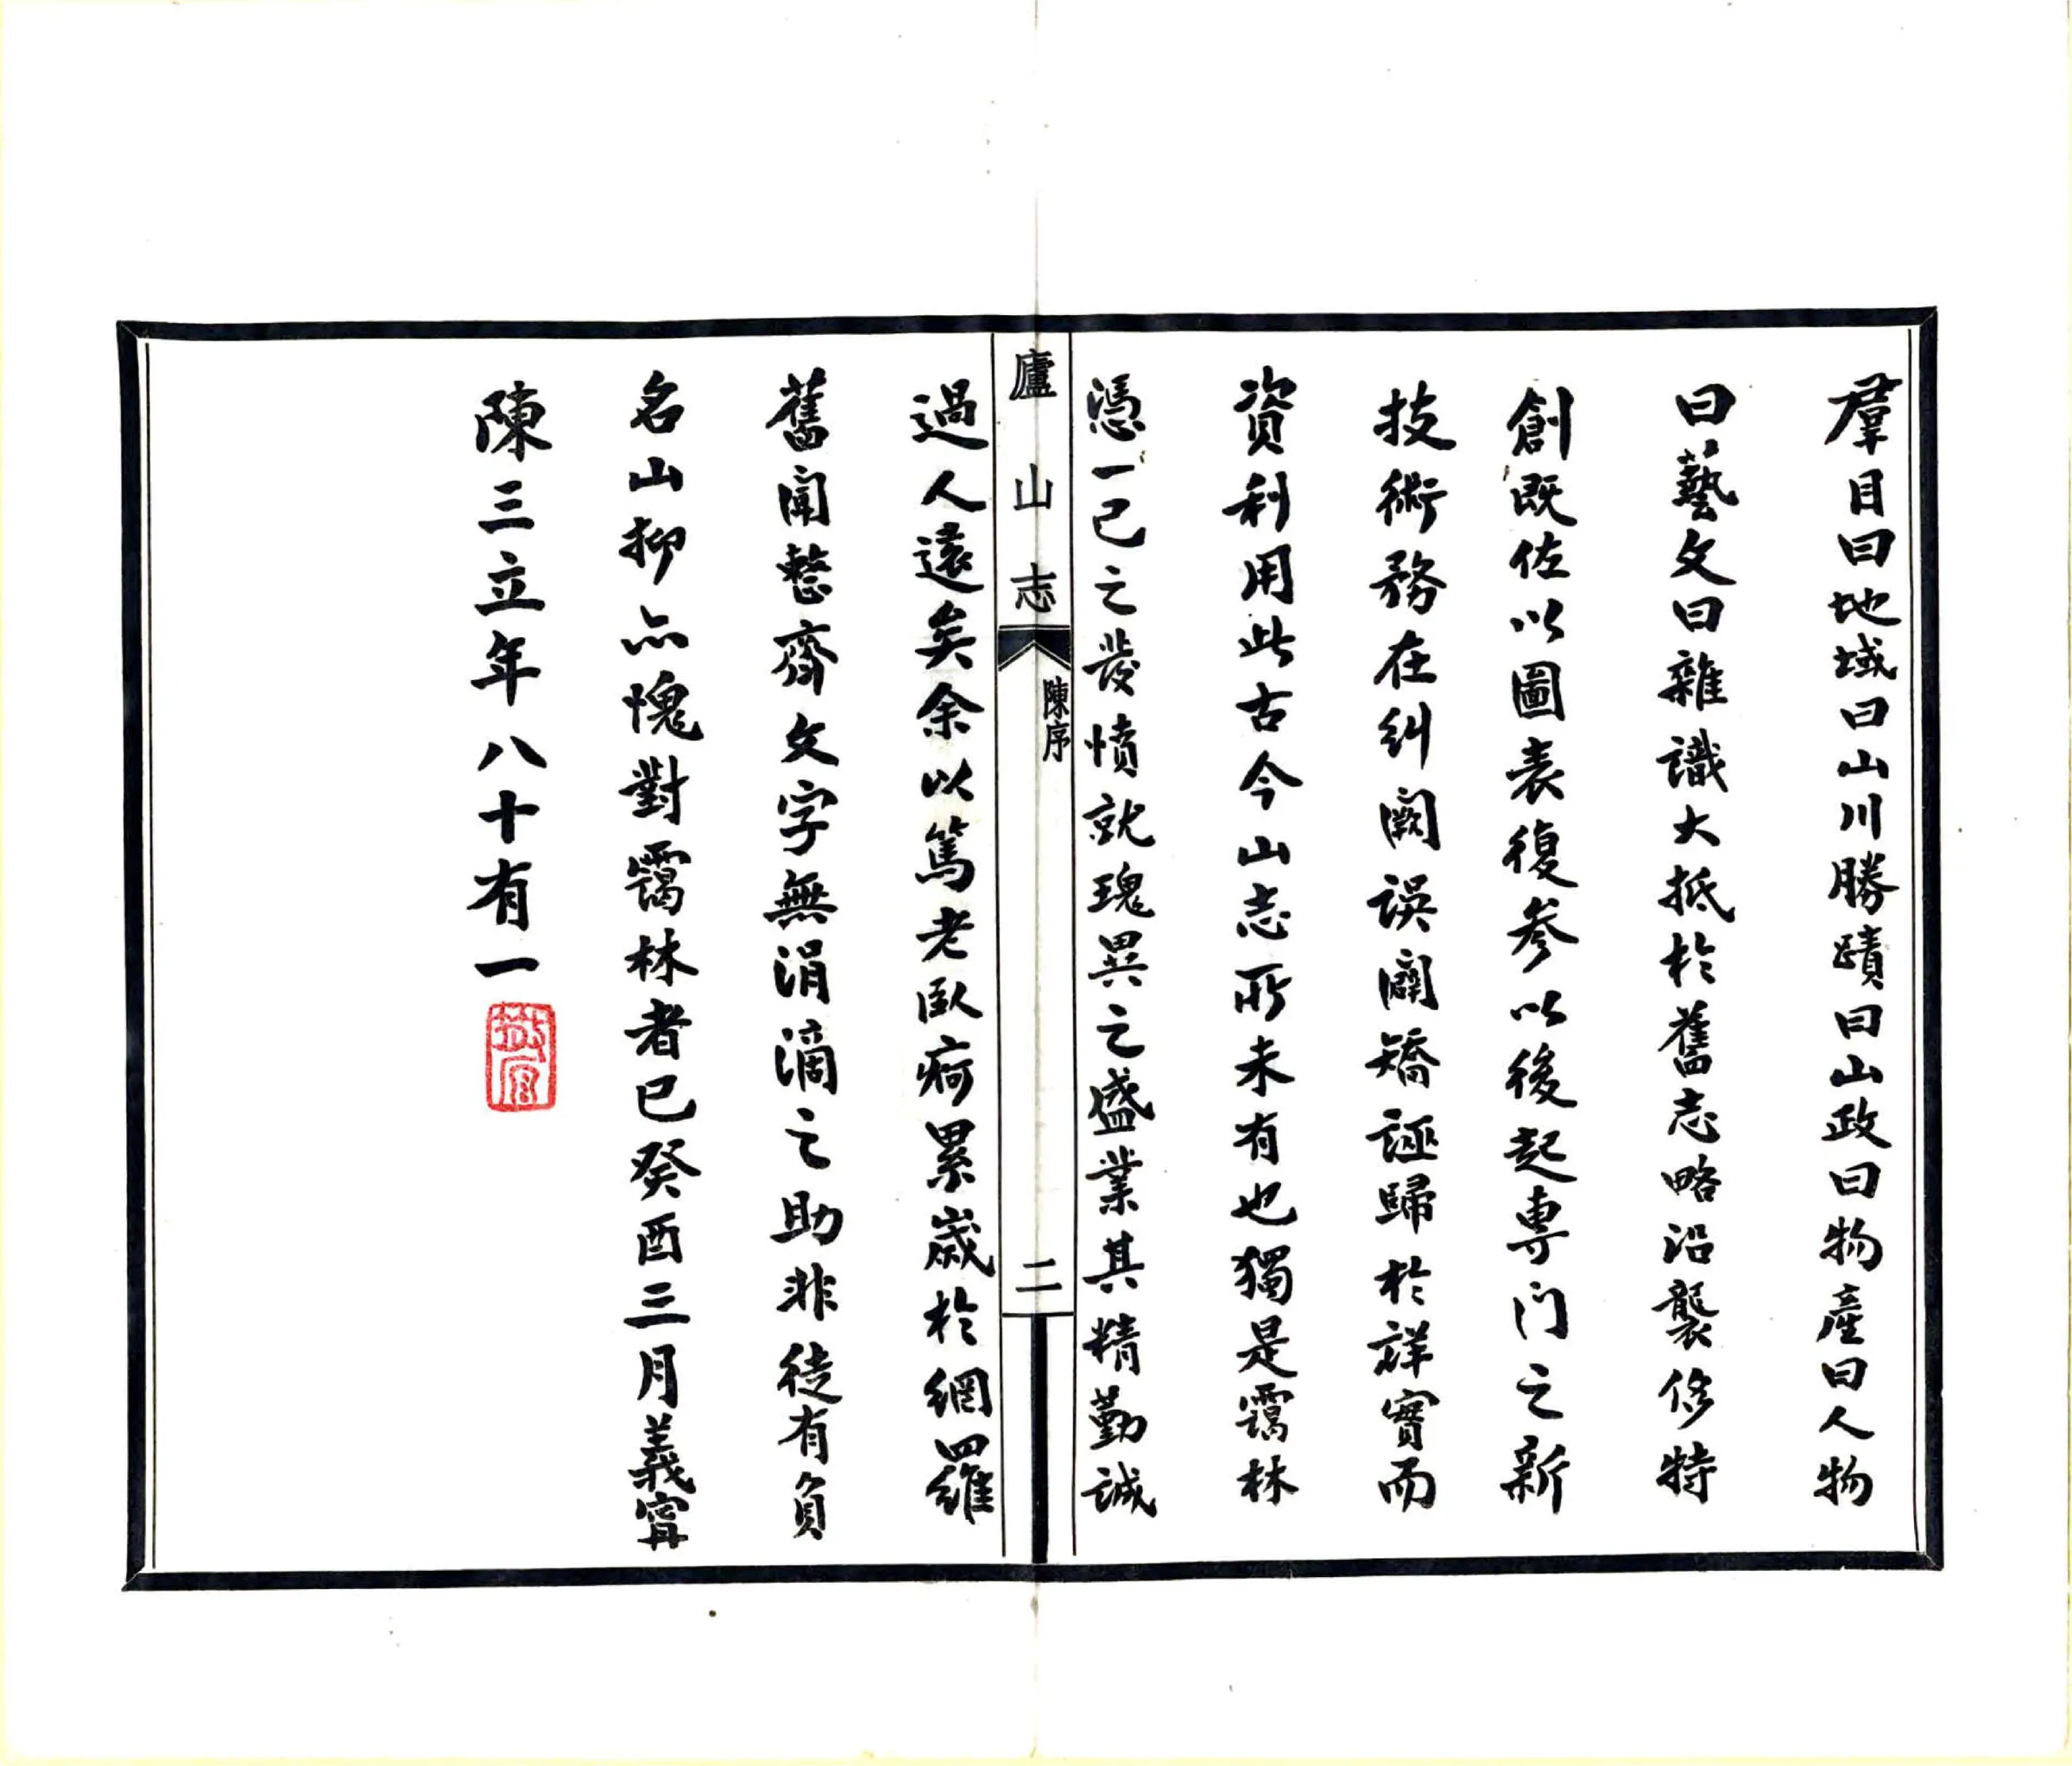 羣目曰地域曰山川勝蹟曰山政曰物產曰人物
曰藝文曰雜識大抵於舊志略沿襲修特
創既佐以圖表復參以後起專门之新
技術務在糾闕誤闢矯誣歸於詳實而
資利用此古今山志所未有也獨是靄林
憑一己之發憤就瑰異之盛業其精勤誠
廬山志
陳序
二
過人遠矣余以篤老臥疴累歲於網羅
舊聞整齊文字無涓滴之助非徒有負
名山抑亦愧對靄林者已癸酉三月義寧
陳三立年八十有一